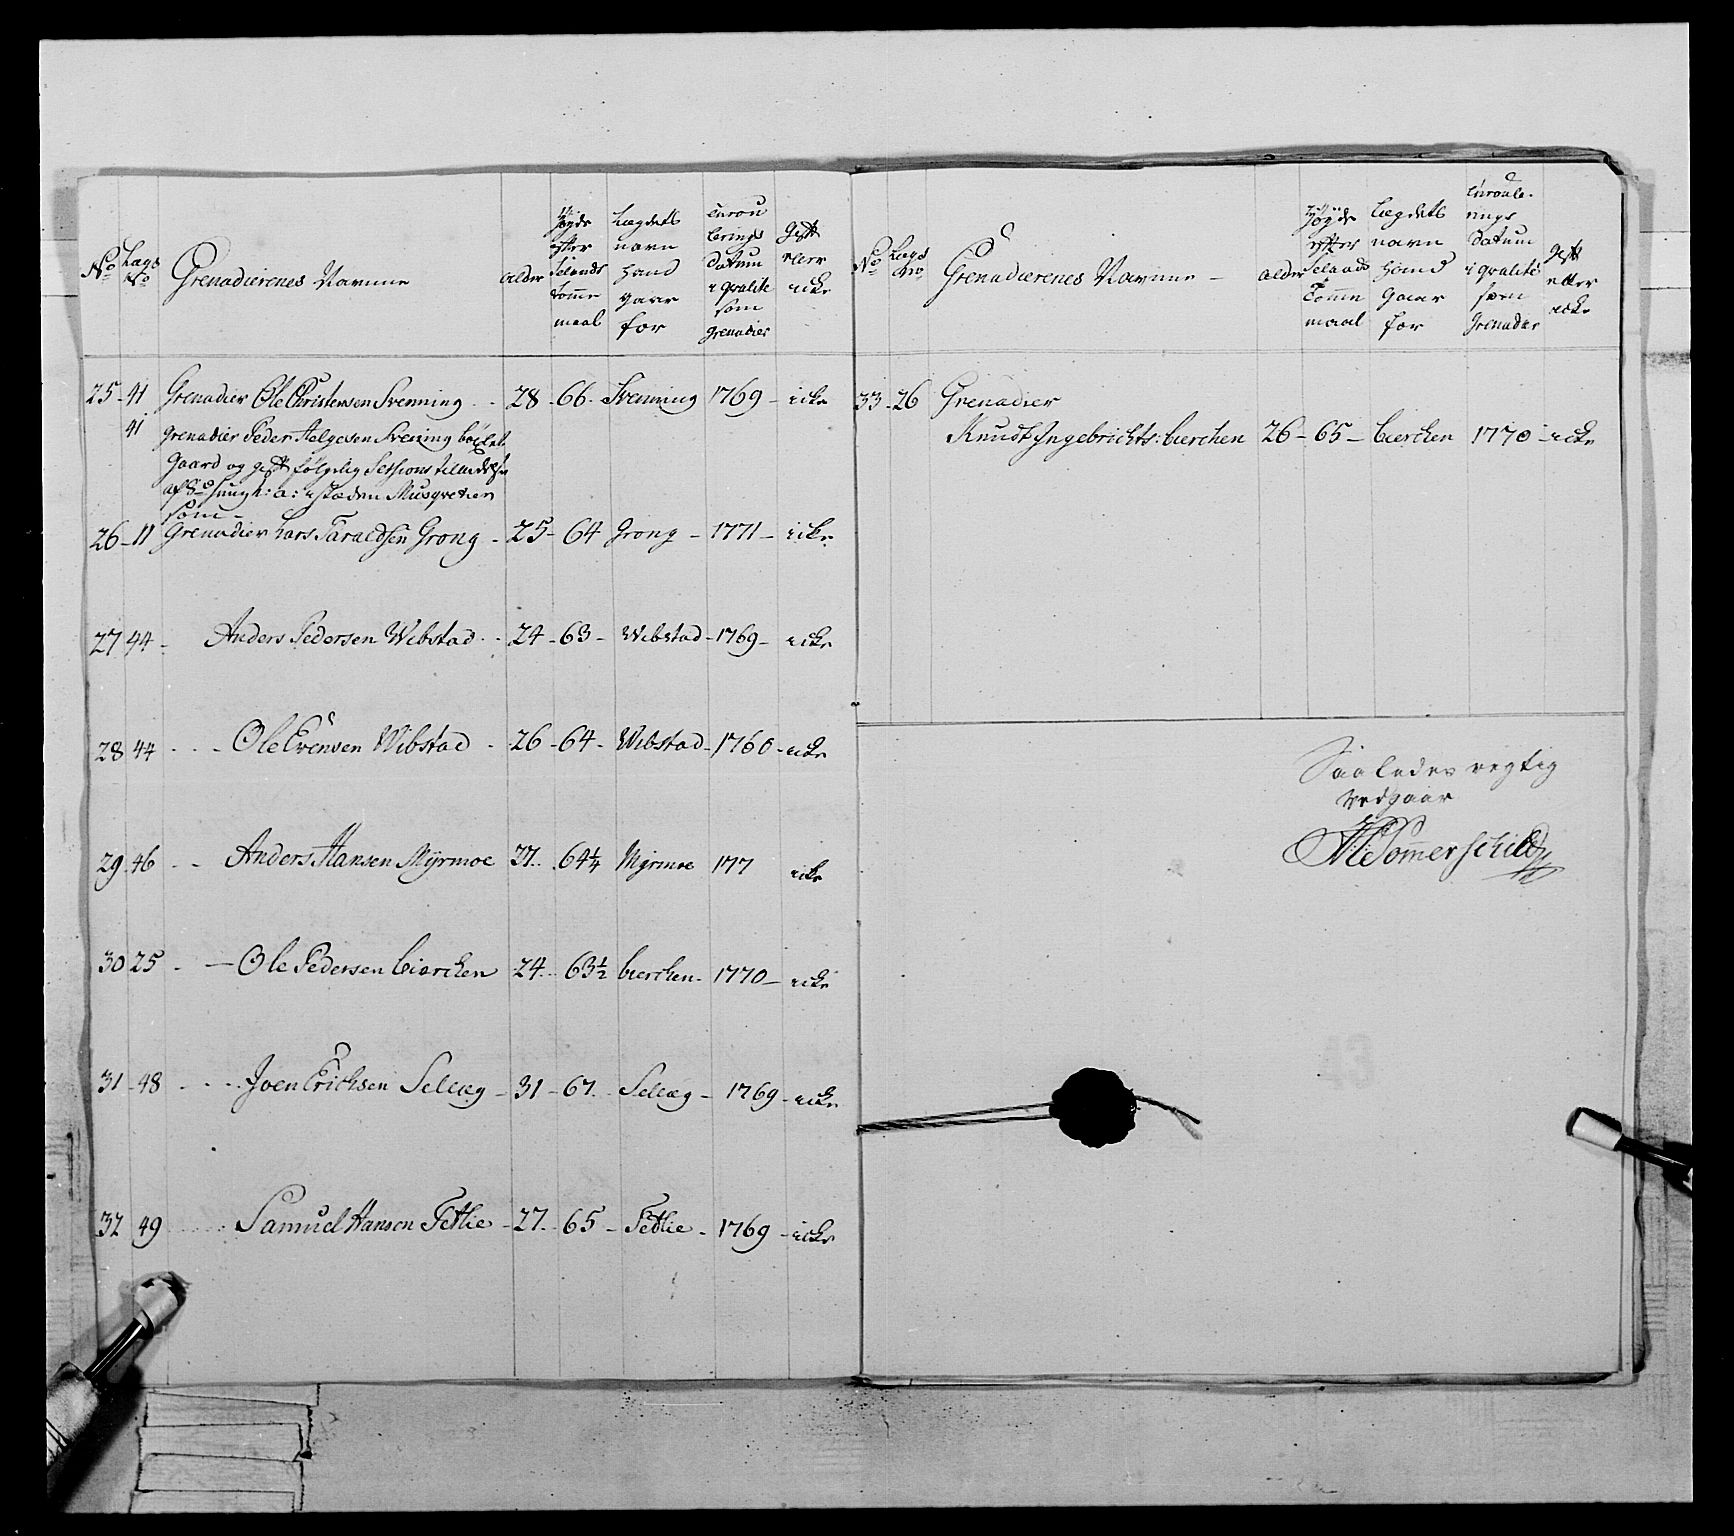 No
Lægs No
Grenadierenes Navnne
alder
Høyde efter Selands Tomme maal
Lægdetz navn hand gaar for
Enroulerings Datum i qvalite som Grenadier
Gift eller icke
25 - 41 Grenadier Ole Christensen Svenning - 28 - 66 - Svenning 1769 - icke
41 Grenadier Peder Helgesen Svening
Gaard og gift følgelig Sessions
Musqveteer
som -
26 - 11 Grenadier Lars Taraldsen Grong - 25 - 64 Grong - 1771 - icke
27 44 - Anders Pedersen Wibstad - 24 - 63 - Wibstad - 1769 - icke
28 44 - Ole Evensen Wibstad - 26 - 64 - Wibstad - 1760 - icke
29 46 - Anders Hansen Myrmoe 27 64¼ Myrmoe 177 icke
30 25 - Ole Pedersen Bierchen 24 63½ Bierchen - 1770 - icke
31 - 48 - Joen Erichsen Sellæg - 31 - 67 Sellæg - 1769 - icke
32 49 Samuel Hansen Fetlie - 27 - 65 - Fetlie - 1769 - icke
No
Lægs No
Grenadierenes Navnne -
alder
Høyde efter Selands Tomme maal
Lægdets navn hand gaar for
Enroulerings Datum i qvalite som Grenadier
gift eller icke
33 - 26 Grenadier
Knudt Ingebrichts: Bierchen 26 - 65 - Bierchen 1770 - icke
Saaledes rigtig
vedgaar
Sommerschild